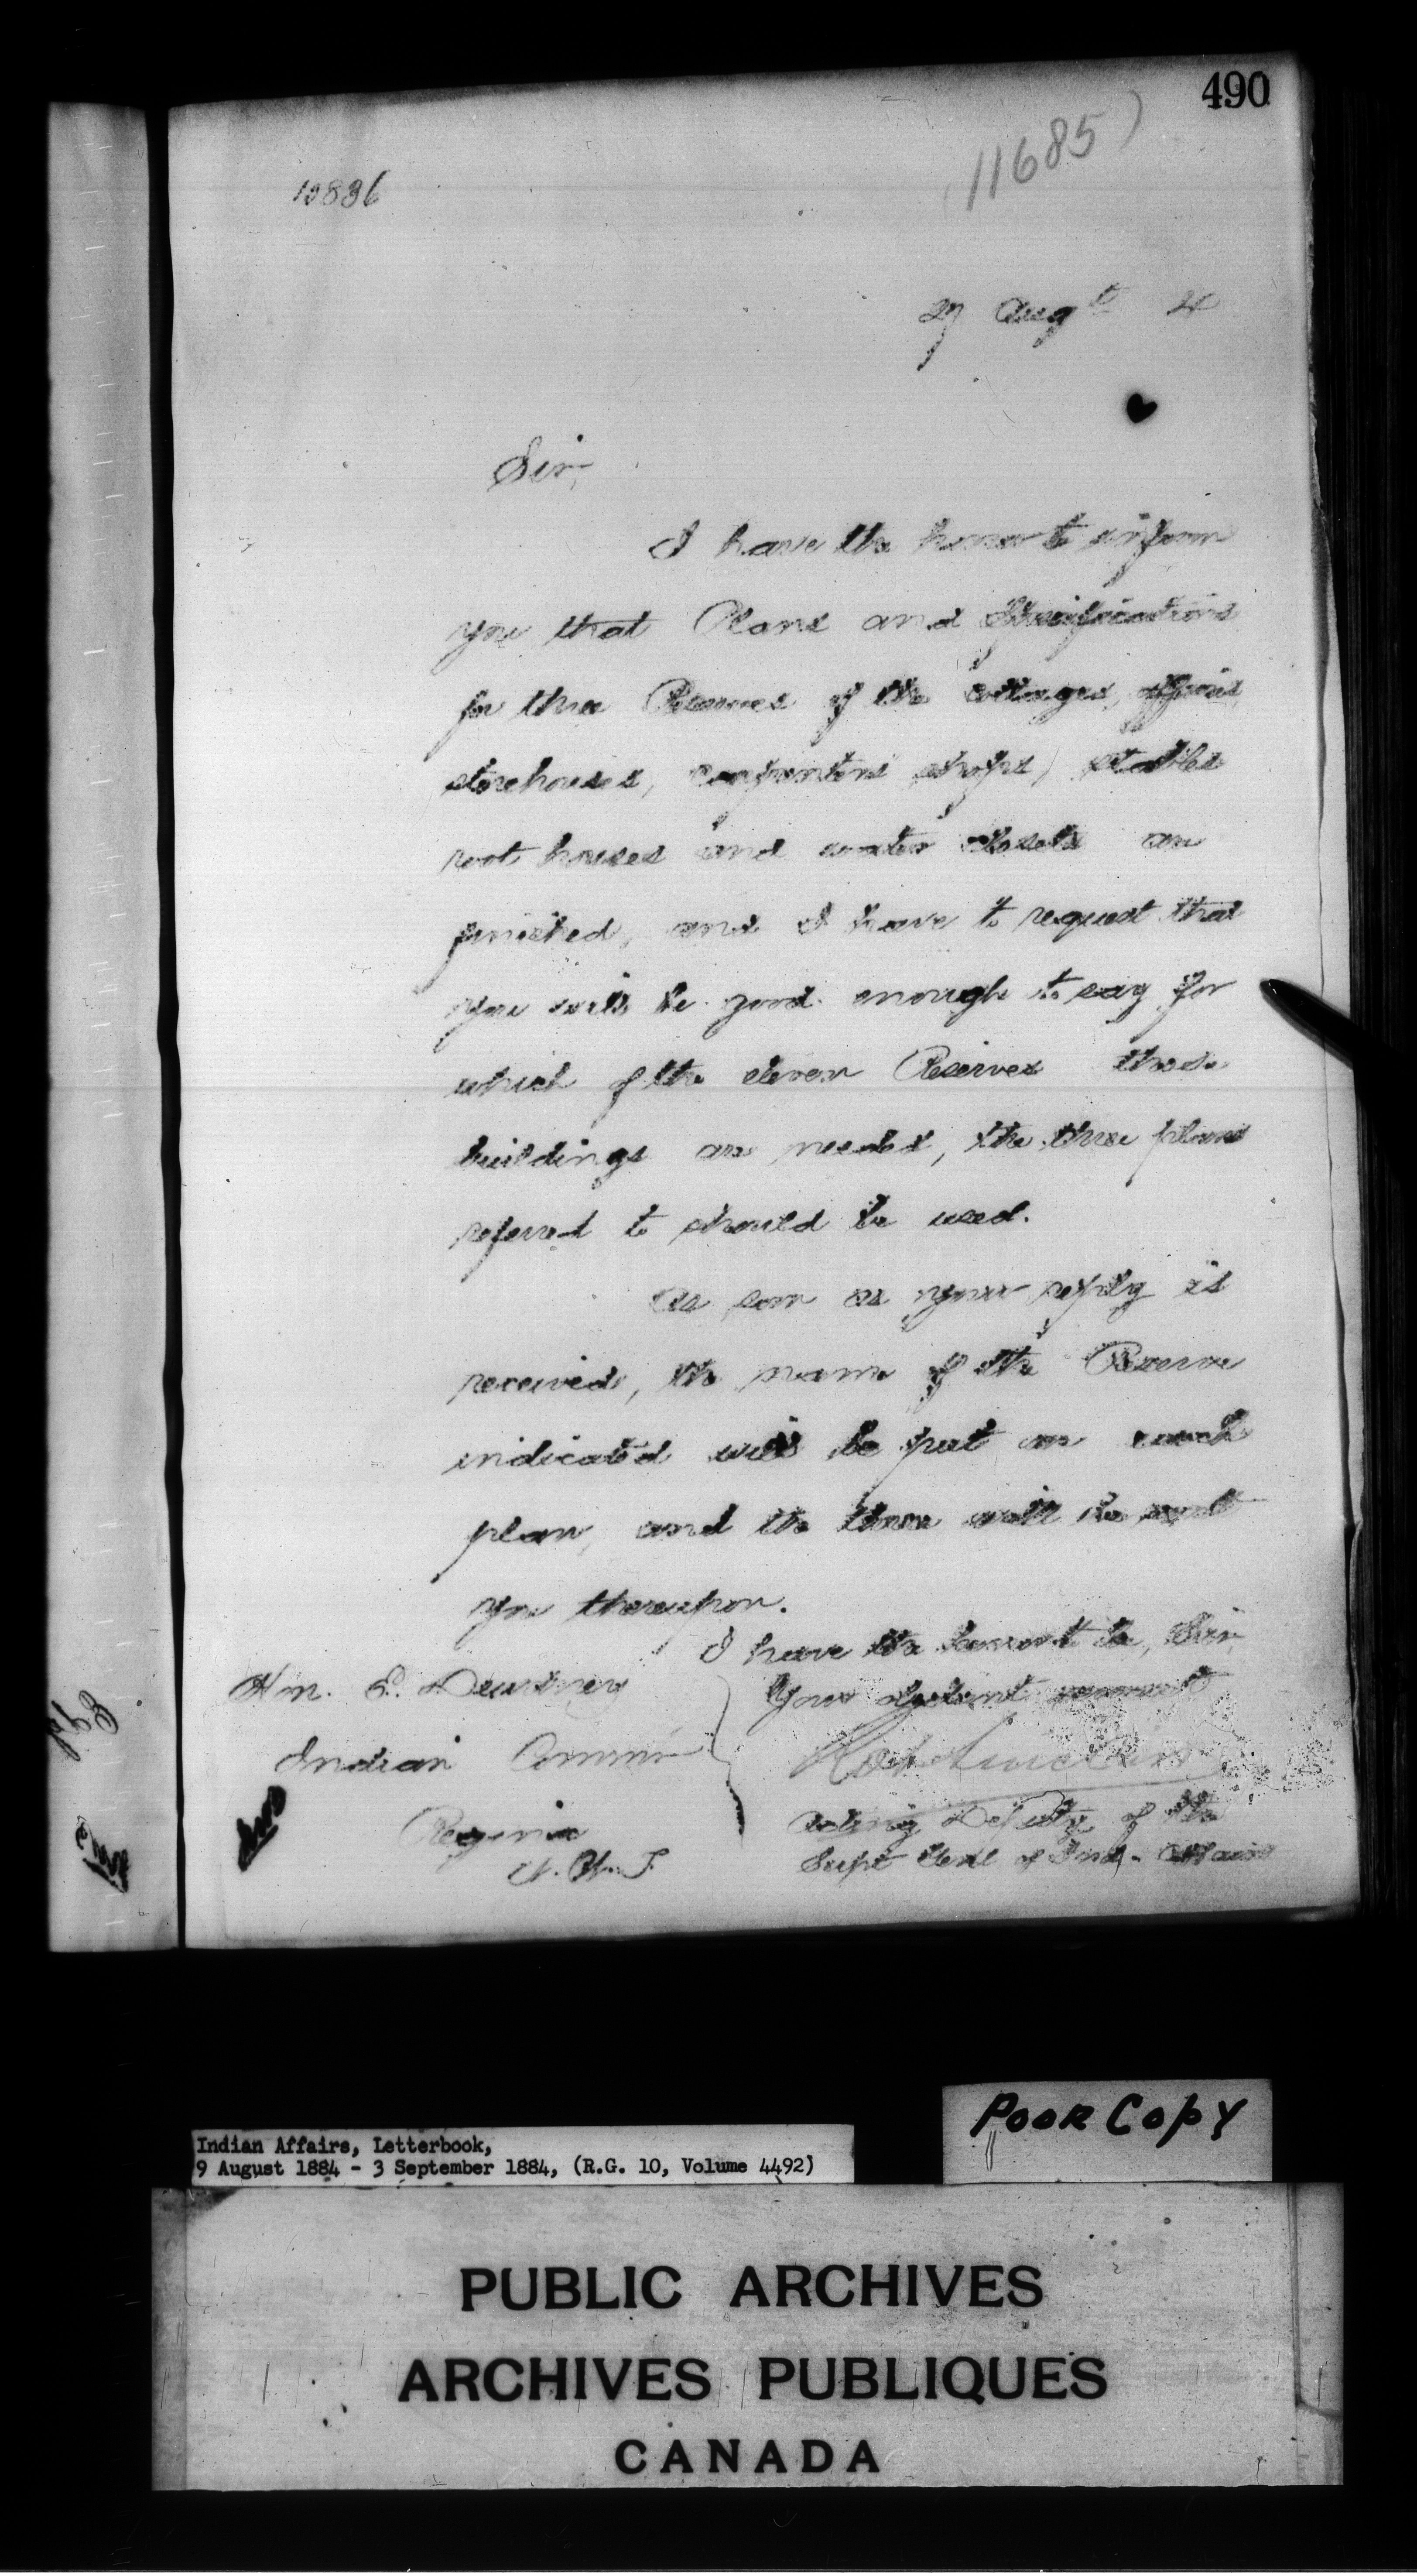 490
11685)
10836
27 Augt 4
Sir,
I have the honor to inform
you that Plans and Specifications
for three Reserves of the cottages, offices,
storehouses, carpenters shops, stables
root houses and water closets are
finished, and I have to request that
you will be good enough to say for
which of the eleven Reserves these
buildings are needed, the three plans
referred to should be used.
As soon as your reply is
received, the name of the Reserve
indicated will be put on each
plan, and the three will be sent
you thereupon.
I have the honor to be, Sir,
Your obedient servant
Hon. E. Dewdney
Indian Commr
Regina
N.W.T.
Robt Sinclair
Acting Deputy of the
Supt Genl of Ind. Affairs
Poor Copy
Indian Affairs, Letterbook,
9 August 1884 - 3 September 1884, (R.G. 10, Volume 4492)
PUBLIC ARCHIVES
ARCHIVES PUBLIQUES
CANADA